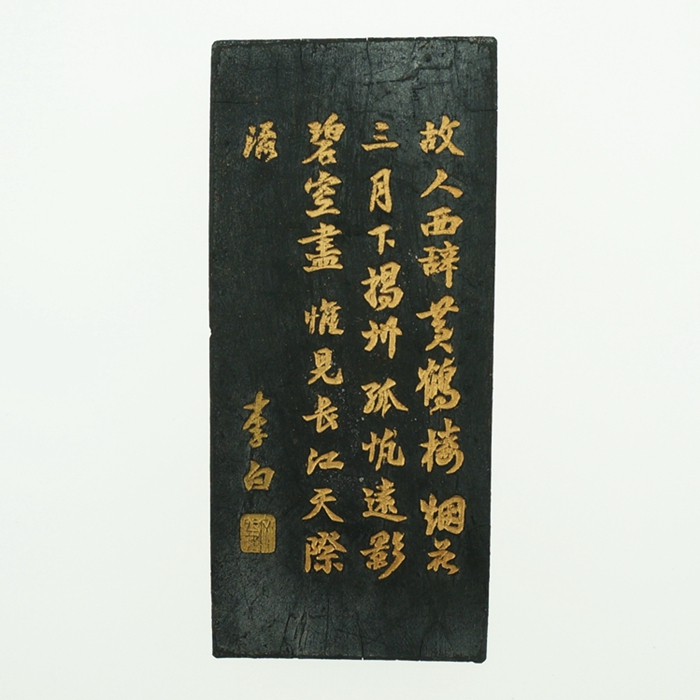 故人西辞黄鶴楼 烟花
三月下揚州 孤帆遠影
碧空盡 惟見长江天際
流
李白